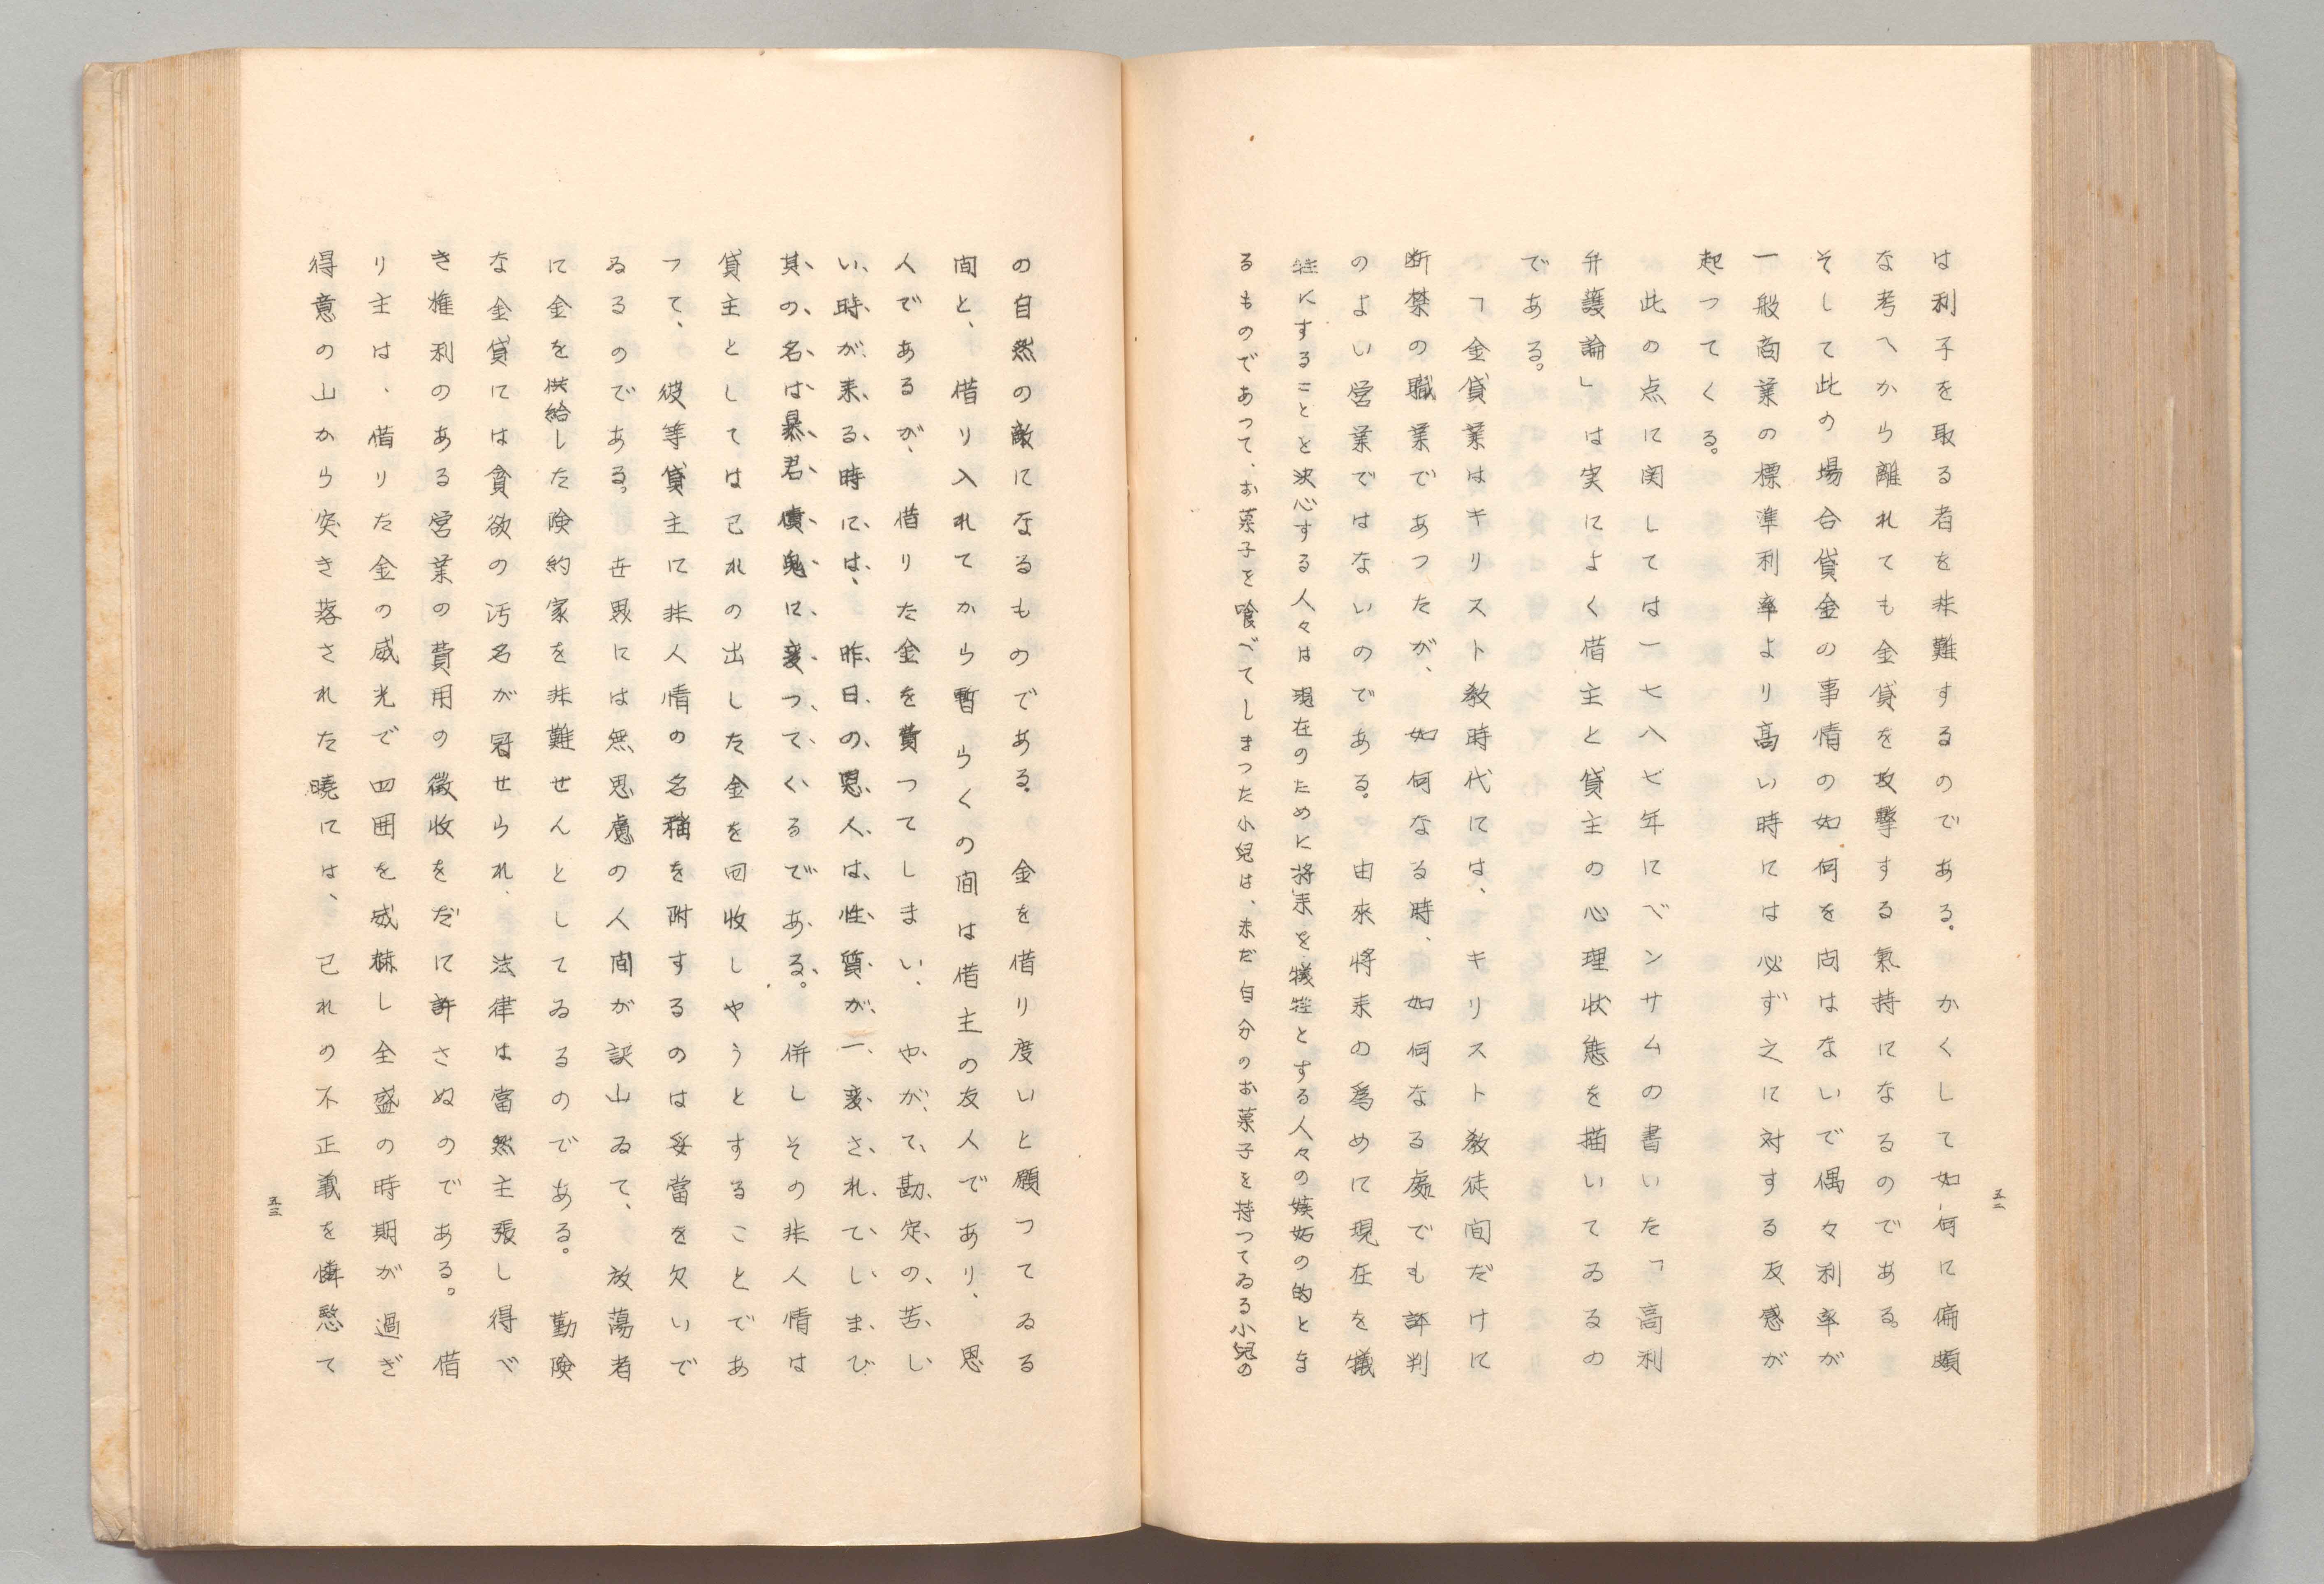 は利子を取る者を非難するのである。かくして如何に偏頗
な考へから離れても金貸を攻撃する氣持になるのである。
そして此の場合貸金の事情の如何を问はないで偶々利率が
一般商業の標準利率より高い時には必ず之に対する反感が
起つてくる。
此の点に関しては一七八七年にベンサムの書いた「高利
弁護論」は実によく借主と貸主の心理状態を描いてゐるの
である。
「金貸業はキリスト教時代には、キリスト教徒间だけに
断禁の職業であつたが、如何なる時、如何なる處でも評判
のよい営業ではないのである。由來將来の爲めに現在を犠
牲にすることと決心する人々は現在のために將来を犠牲とする人々の嫉妬の的とま
るものであつて、お菓子を喰べてしまつた小兒は、未だ自分のお菓子を持つてゐる小兒の
五二
の自然の敵になるものである。金を借り度いと願つてゐる
间と、借り入れてから暫らくの间は借主の友人であり、恩
人であるが、借りた金を費つてしまい、やがて勘定の苦し
い時が来る時には、昨日の恩人は性質が一変されてしまひ
其の名は暴君債鬼に変つてくるである。併しその非人情は
貸主としては己れの出した金を回收しやうとすることであ
つて、彼等貸主に非人情の名稱を附するのは妥當を欠いで
ゐるのである。世界には無思慮の人间が訳山ゐて、放蕩者
に金を供給した険約家を非難せんとしてゐるのである。勤険
な金貸には貪欲の汚名が冠せられ、法律は當然主張し得べ
き権利のある営業の費用の徴收をだに許さぬのである。借
り主は、借りた金の威光で四囲を威赫し全盛の時期が過ぎ
得意の山から突き落された曉には、己れの不正義を憐愍て
五三